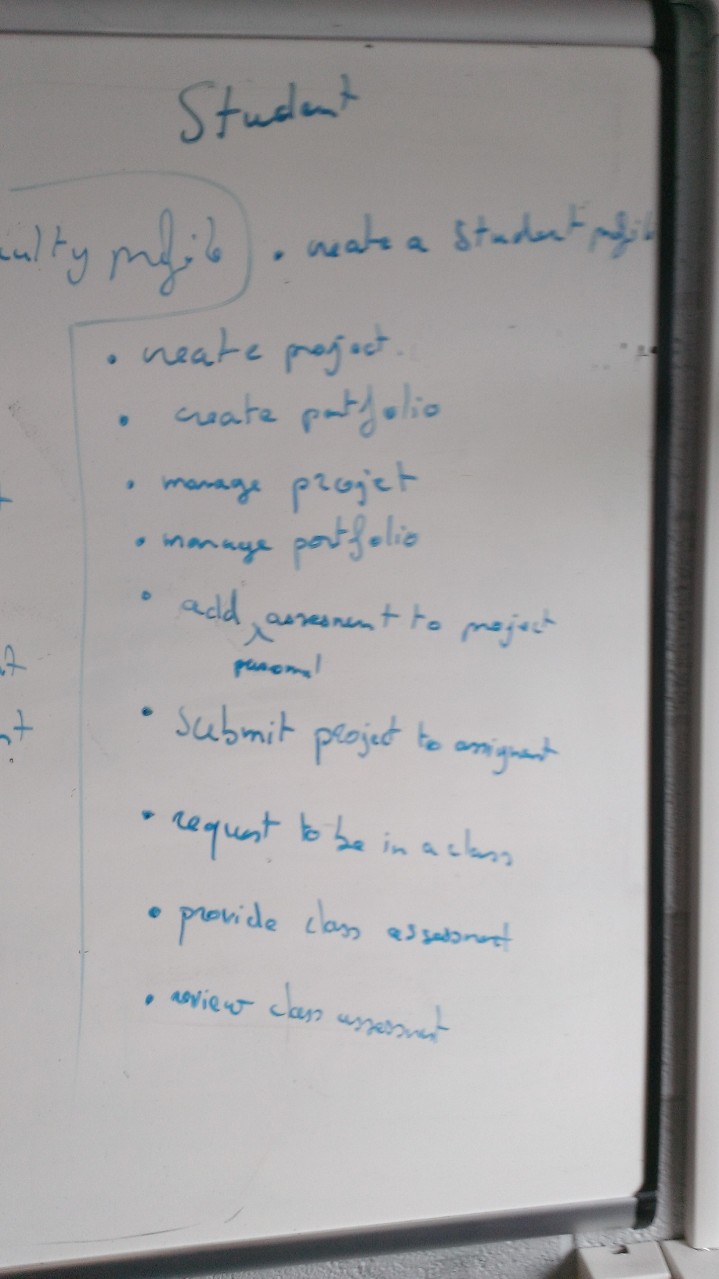 Student
ulty profile • create a student profile
• create project
• create portfolio
• manage projet
• manage portfolio
• add assessment to project
personal
• submit project to assignment
• request to be in a class
• provide class assessment
• review class assessment